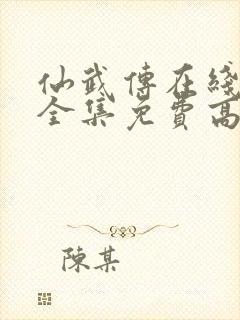 仙武傳在綫
全集免費高
陳某